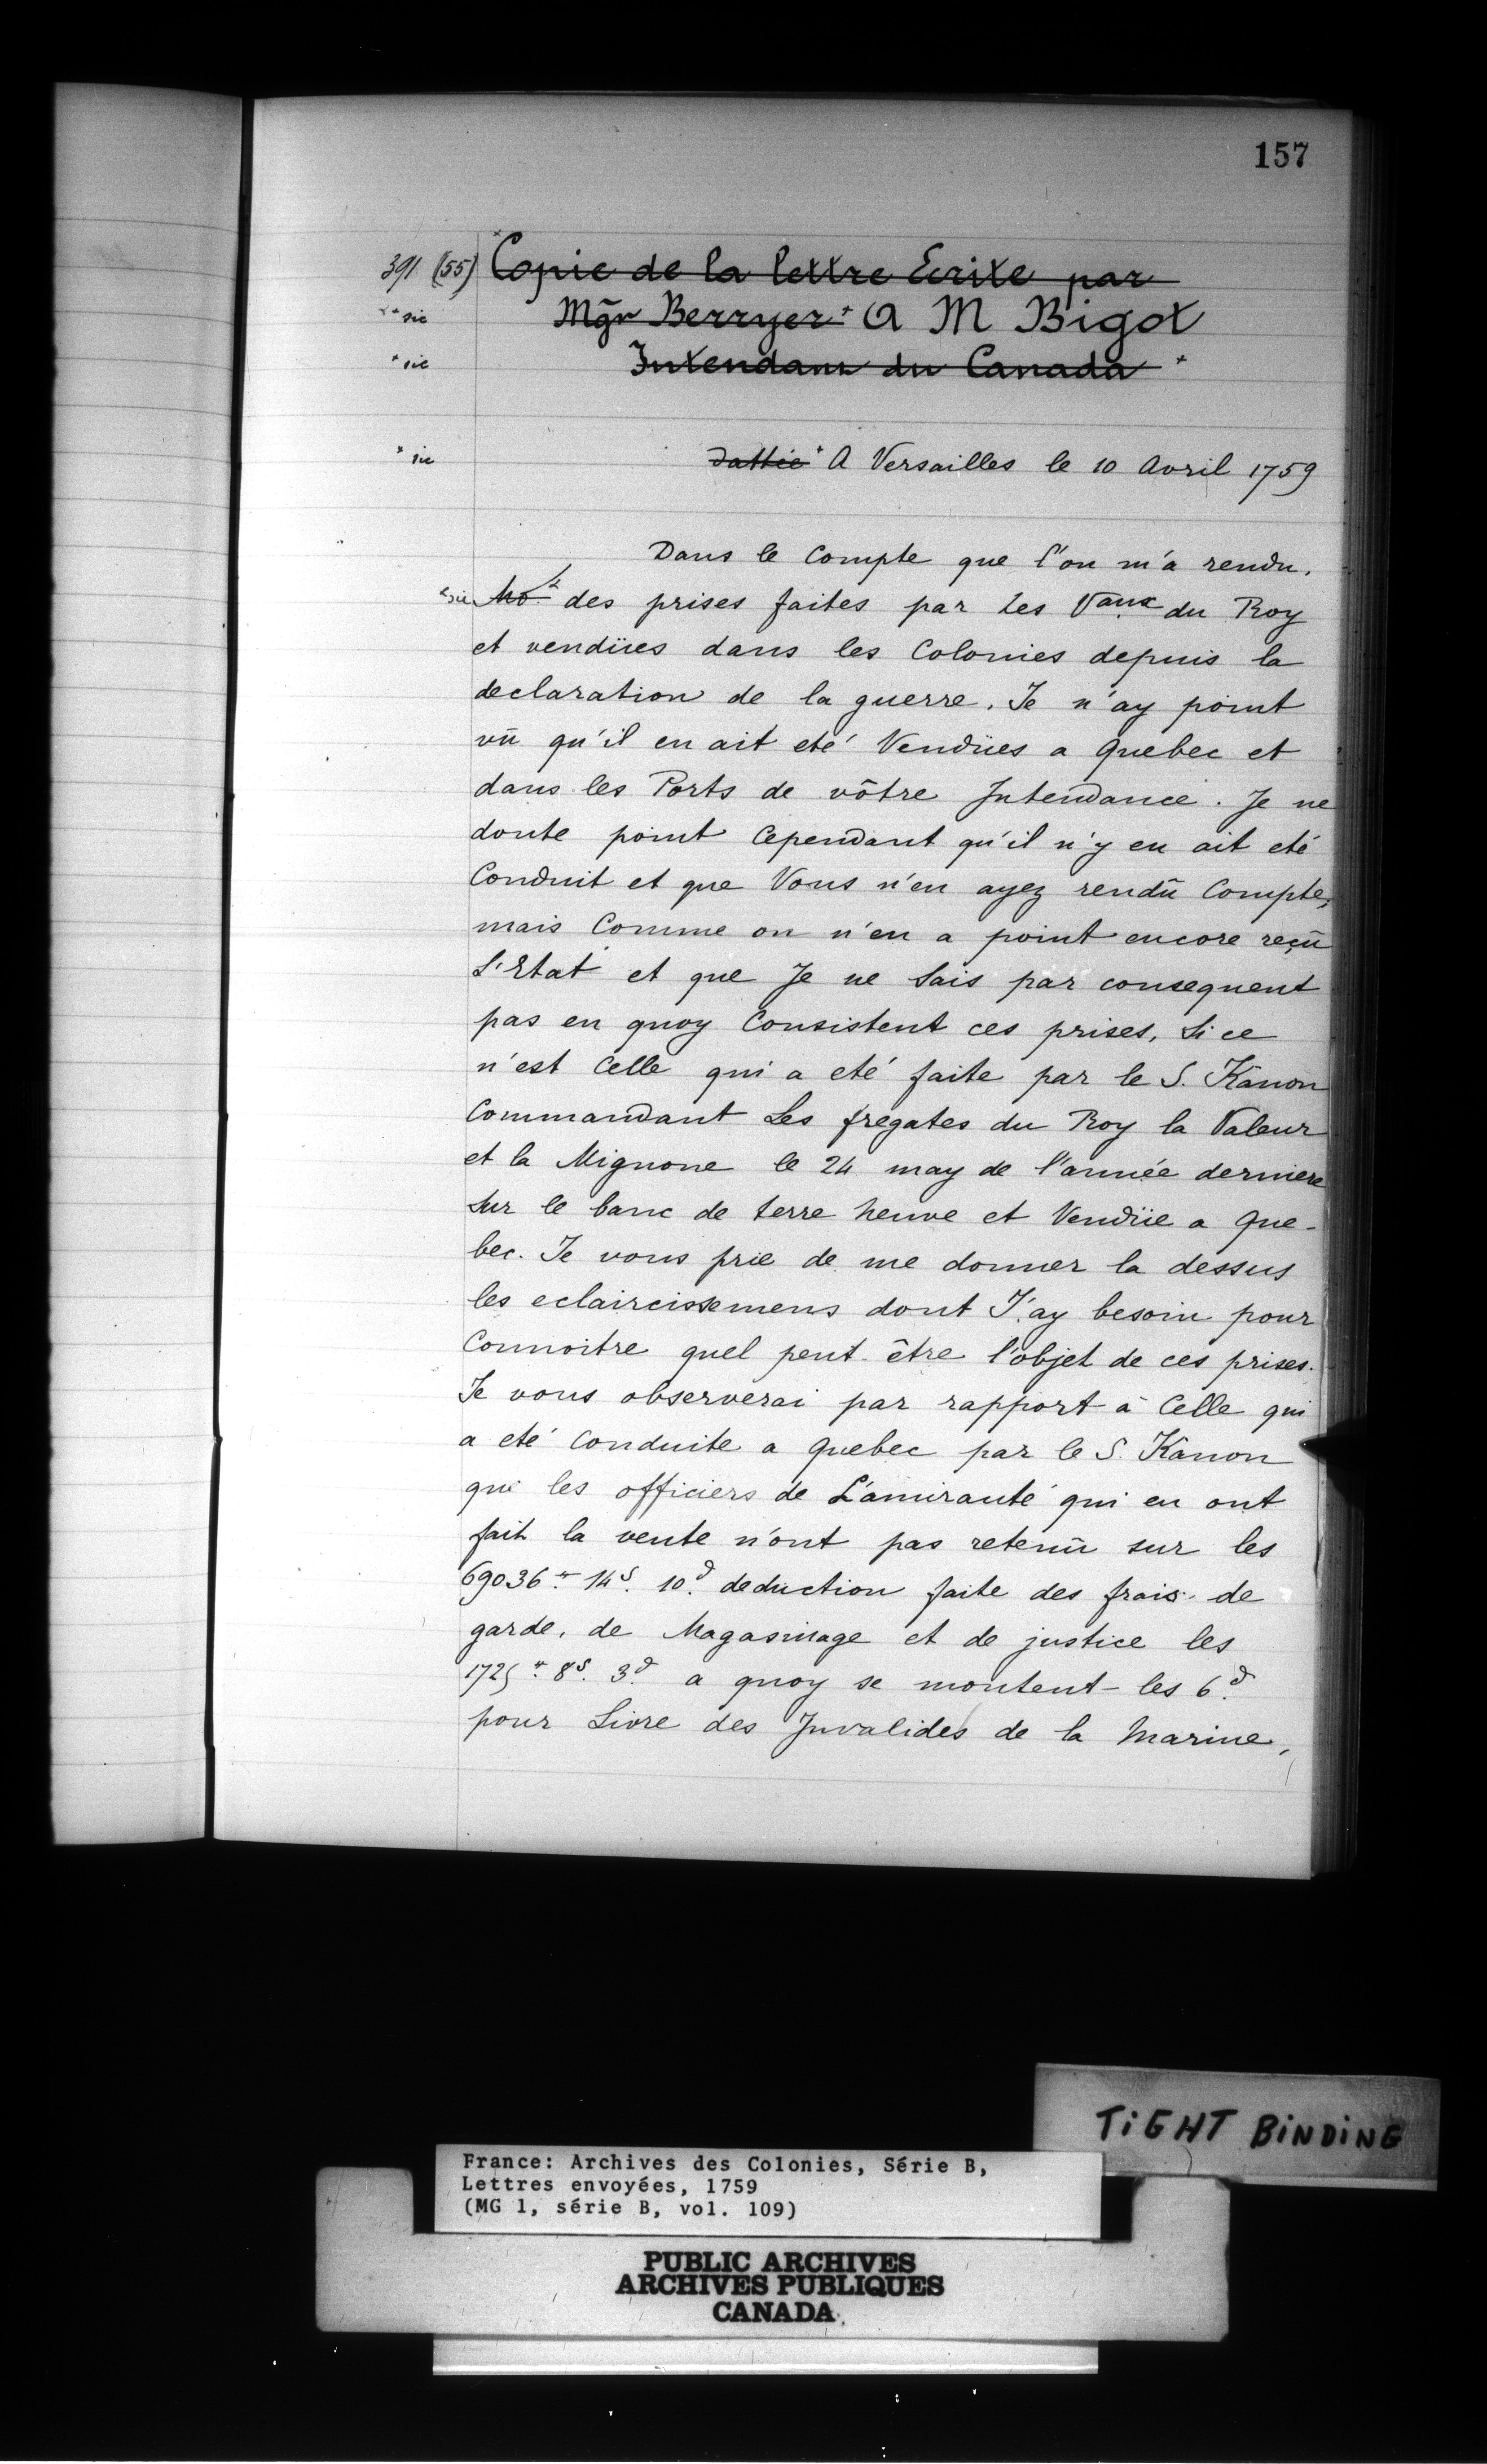 157
391 (55) *Copie de la lettre Ecrite par
*sic Mgr Berryer* A M Bigot
*sic Intendant du Canada*
*sic Dattée* A Versailles le 10 Avril 1759
Dans le Compte que l'on m'a rendu.
*sic Mr.* des prises faites par Les Vaux du Roy
et vendües dans les Colonies depuis la
declaration de la guerre. Je n'ay point
vû qu'il en ait eté Vendües a Quebec et
dans les Ports de vôtre Intendance. Je ne
doute point Cependant qu'il n'y en ait eté
Conduit et que Vous n'en ayez rendû Compte,
mais Comme on n'en a point encore reçû
L'Etat et que Je ne Sais par consequent
pas en quoy Consistent ces prises, Si ce
n'est Celle qui a eté faite par le S. Kanon
Commandant Les fregates du Roy la Valeur
et la Mignone le 24 may de l'année derniere
Sur le banc de terre neuve et Vendüe a Que-
bec. Je vous prie de me donner la dessus
les eclaircissemens dont J'ay besoin pour
Connoitre quel peut-être l'objet de ces prises.
Je vous observerai par rapport à Celle qui
a eté Conduite a Quebec par le S. Kanon
que les officiers de L'amirauté qui en ont
fait la vente n'ont pas retenû sur les
69036.tt 14s. 10.d deduction faite des frais de
garde, de Magasinage et de justice les
1725.tt 8s. 3.d a quoy se montent les 6.d
pour Livre des Invalides de la Marine,
TIGHT BINDING
France: Archives des Colonies, Série B,
Lettres envoyées, 1759
(MG 1, série B, vol. 109)
PUBLIC ARCHIVES
ARCHIVES PUBLIQUES
CANADA